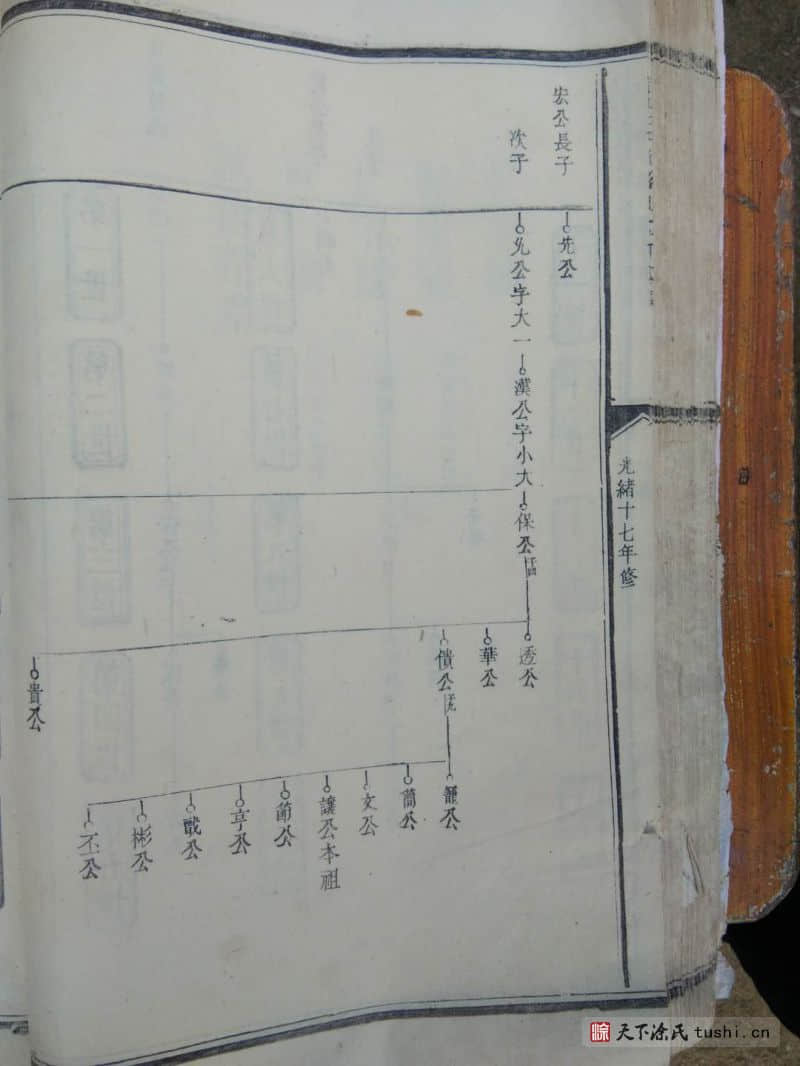 光緒十七年修
宏公長子
先公
次子
允公字大一
漢公字小大
保公
透公
華公
僨公
貴公
龍公
簡公
文公
讓公本祖
莆公
亨公
戩公
彬公
丕公
天下涂氏 tushi.cn